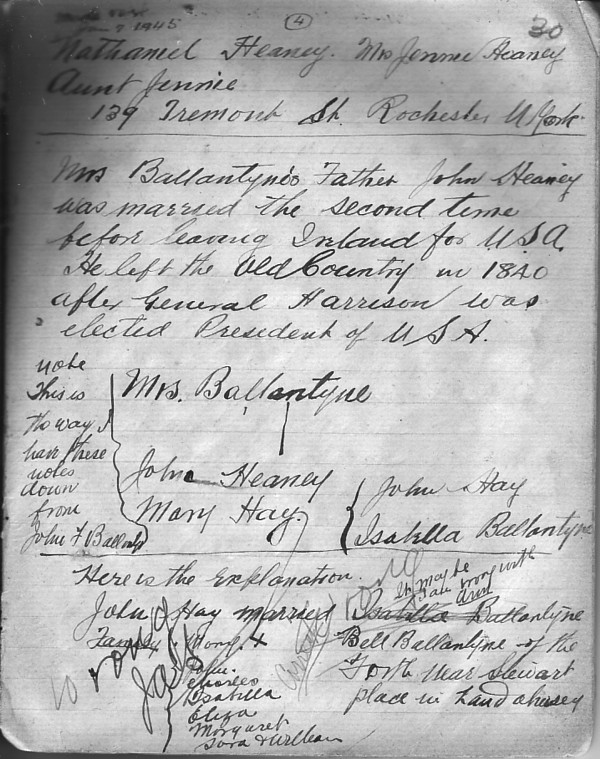 1945
4
30
Nathaniel Heaney. Mrs Jennie Heaney
Aunt Jennie
139 Tremont St. Rochester N York.
Mrs Ballantyne's Father John Heaney
was married the second time
before leaving Ireland for U.S.A.
He left the Old Country in 1840
after General Harrison was
elected President of U S A.
note
This is
the way I
have these
notes
down
from
John F Ballanty
Mrs. Ballantyne
John Heaney
Mary Hay.
John Hay
Isabella Ballantyne
Here is the Explanation.
It may be
I am wrong with
John Hay married Isabella Ballantyne
Family
Bell Ballantyne of the
Forth near Stewart
place in
John.
Charles
Isabella
Eliza
Margaret